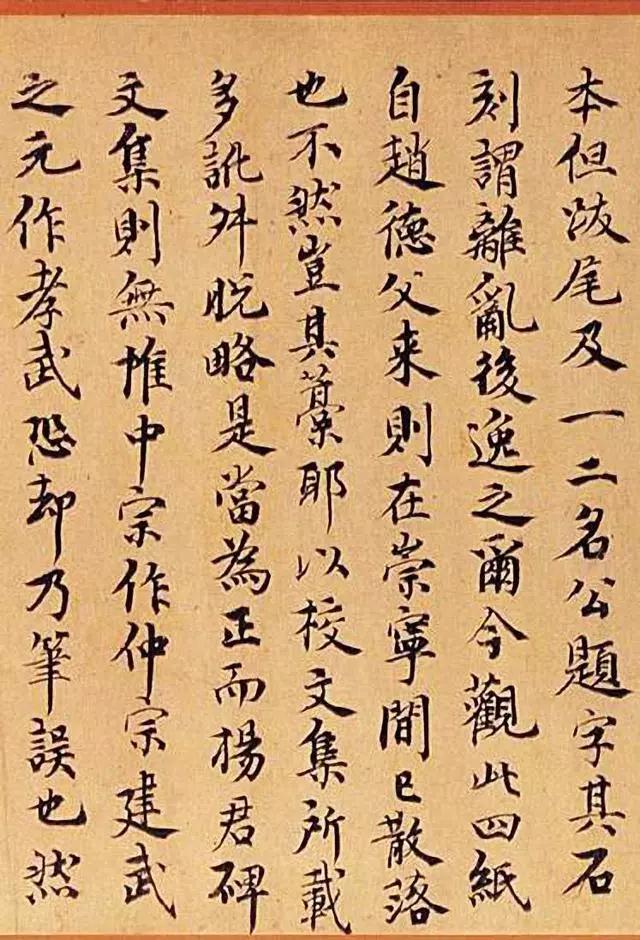 本但跋尾及一二名公題字其石
刻謂離亂後逸之爾今觀此四紙
自趙德父来則在崇寧間已散落
也不然豈其藁耶以校文集所載
多訛舛脫略是當為正而楊君碑
文集則無惟中宗作仲宗建武
之元作孝武恐却乃筆誤也然